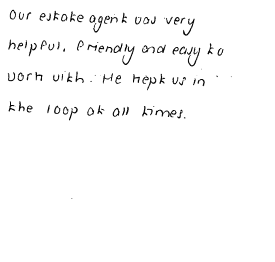 Our estate agent was very
helpful, friendly and easy to
work with. He kept us in
the loop at all times.